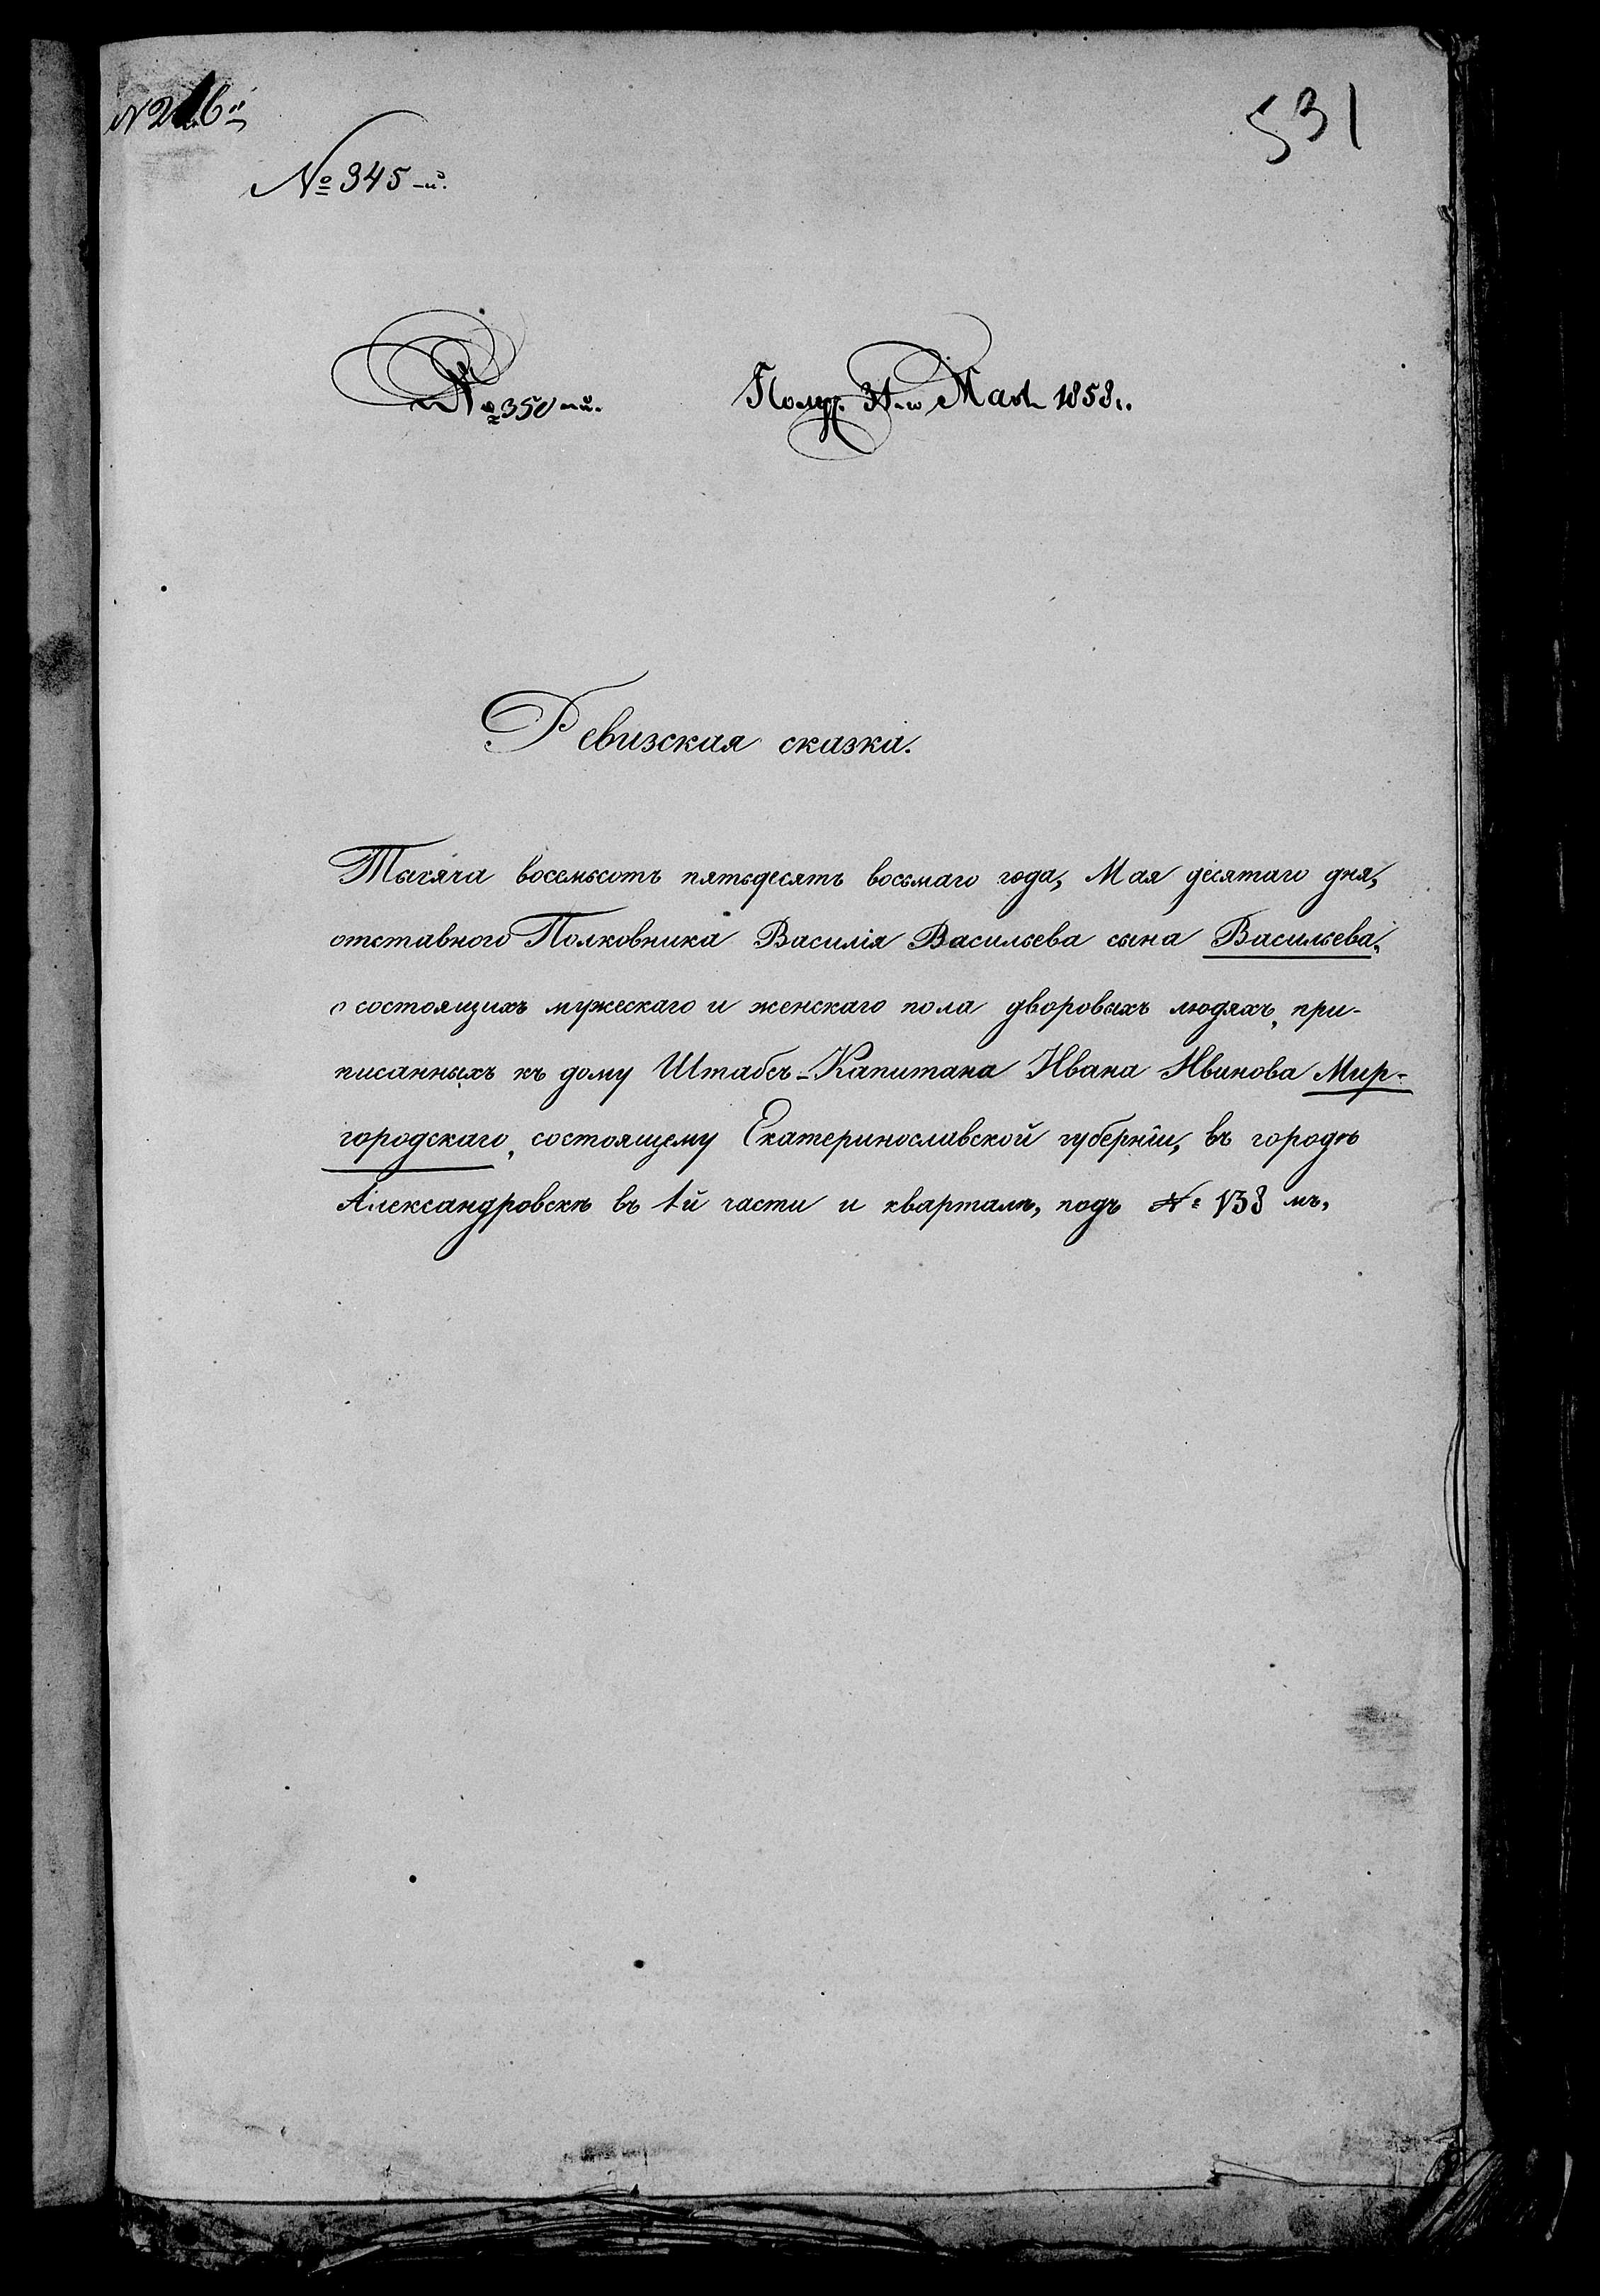 531
№ 345-й.
№ 350-й. Получ. 31-го Мая 1858 г.
Ревизская сказка.
Тысяча восемьсотъ пятьдесятъ восьмаго года, Мая десятаго дня,
отставного Полковника Василія Васильева сына Васильева,
о состоящихъ мужескаго и женскаго пола дворовыхъ людяхъ, при-
писанныхъ къ дому Штабсъ-Капитана Ивана Иванова Мир-
городскаго, состоящему Екатеринославской губерніи, въ городѣ
Александровскѣ въ 1й части и кварталѣ, подъ № 138 мъ.